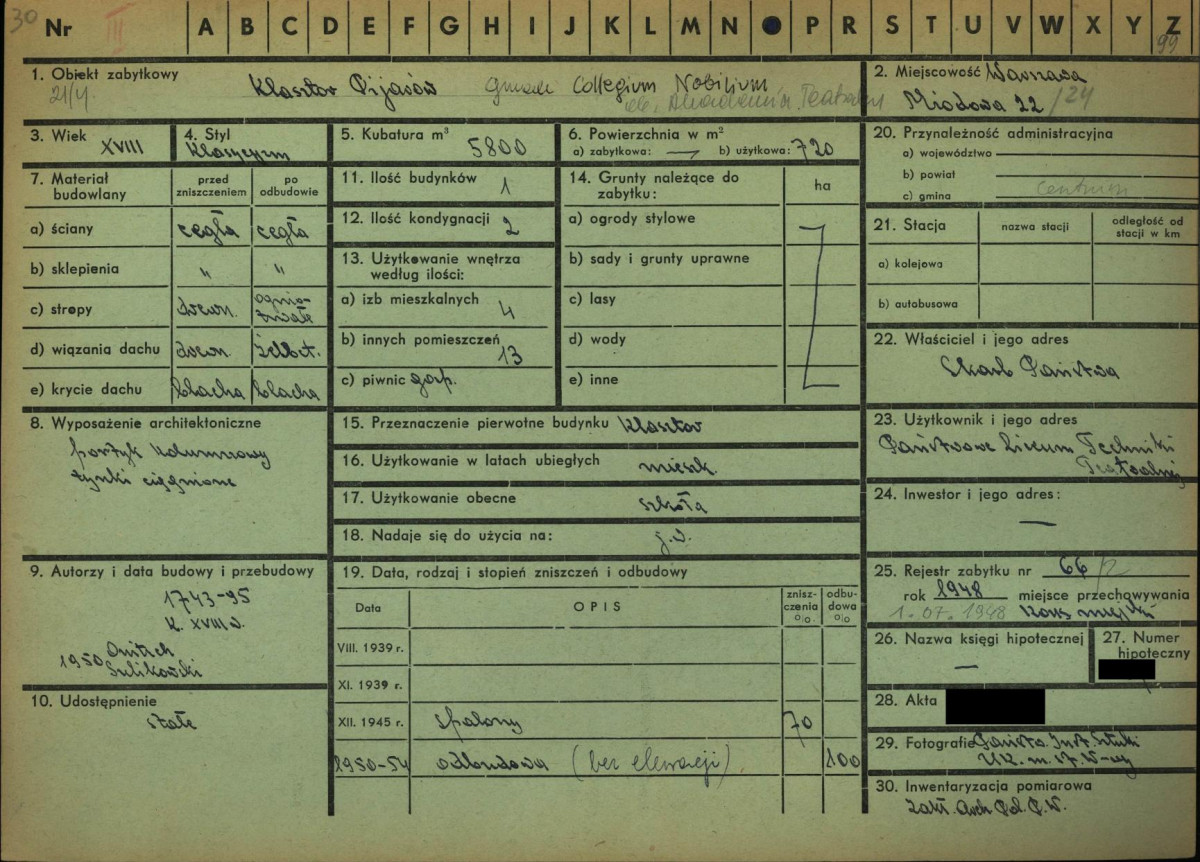 30
Nr III A B C D E F G H I J K L M N P R S T U V W X Y Z
99
1. Obiekt zabytkowy Klasztor Pijarów gmach Collegium Nobilium
21/4. ob. Akademia Teatralna
2. Miejscowość Warszawa
Miodowa 22/24
3. Wiek XVIII
4. Styl
Klasycyzm
5. Kubatura m³
5800
6. Powierzchnia w m²
a) zabytkowa: — b) użytkowa: 720
7. Materiał budowlany
przed zniszczeniem
po odbudowie
a) ściany cegła cegła
b) sklepienia " "
c) stropy drewn. ognio-
trwałe
d) wiązania dachu drewn. żelbet.
e) krycie dachu blacha blacha
8. Wyposażenie architektoniczne
portyk kolumnowy
tynki ciągnione
9. Autorzy i data budowy i przebudowy
1743-95
k. XVIII w.
1950
10. Udostępnienie
stałe
11. Ilość budynków 1
12. Ilość kondygnacji 2
13. Użytkowanie wnętrza
według ilości:
a) izb mieszkalnych 4
b) innych pomieszczeń 13
c) piwnic gosp.
14. Grunty należące do
zabytku:
ha
a) ogrody stylowe
b) sady i grunty uprawne
c) lasy
d) wody
e) inne
15. Przeznaczenie pierwotne budynku klasztor
16. Użytkowanie w latach ubiegłych mieszk.
17. Użytkowanie obecne szkoła
18. Nadaje się do użycia na: j.w.
19. Data, rodzaj i stopień zniszczeń i odbudowy
Data OPIS znisz-
czenia
o/o. odbu-
dowa
o/o
VIII. 1939 r.
XI. 1939 r.
XII. 1945 r. spalony 70
1950-54 odbudowa (bez elewacji) 100
20. Przynależność administracyjna
a) województwo
b) powiat
c) gmina Centrum
21. Stacja nazwa stacji odległość od
stacji w km
a) kolejowa
b) autobusowa
22. Właściciel i jego adres
Skarb Państwa
23. Użytkownik i jego adres
Państwowe Liceum Techniki
Teatralnej
24. Inwestor i jego adres:
—
25. Rejestr zabytku nr 66/2
rok 1948 miejsce przechowywania
1.07.1948 Kons. miejski
26. Nazwa księgi hipotecznej
—
27. Numer
hipoteczny
28. Akta
29. Fotografie Państw. Inst. Sztuki
U.K. m. st. W-wy
30. Inwentaryzacja pomiarowa
Zakł. Arch. Pol. P.W.